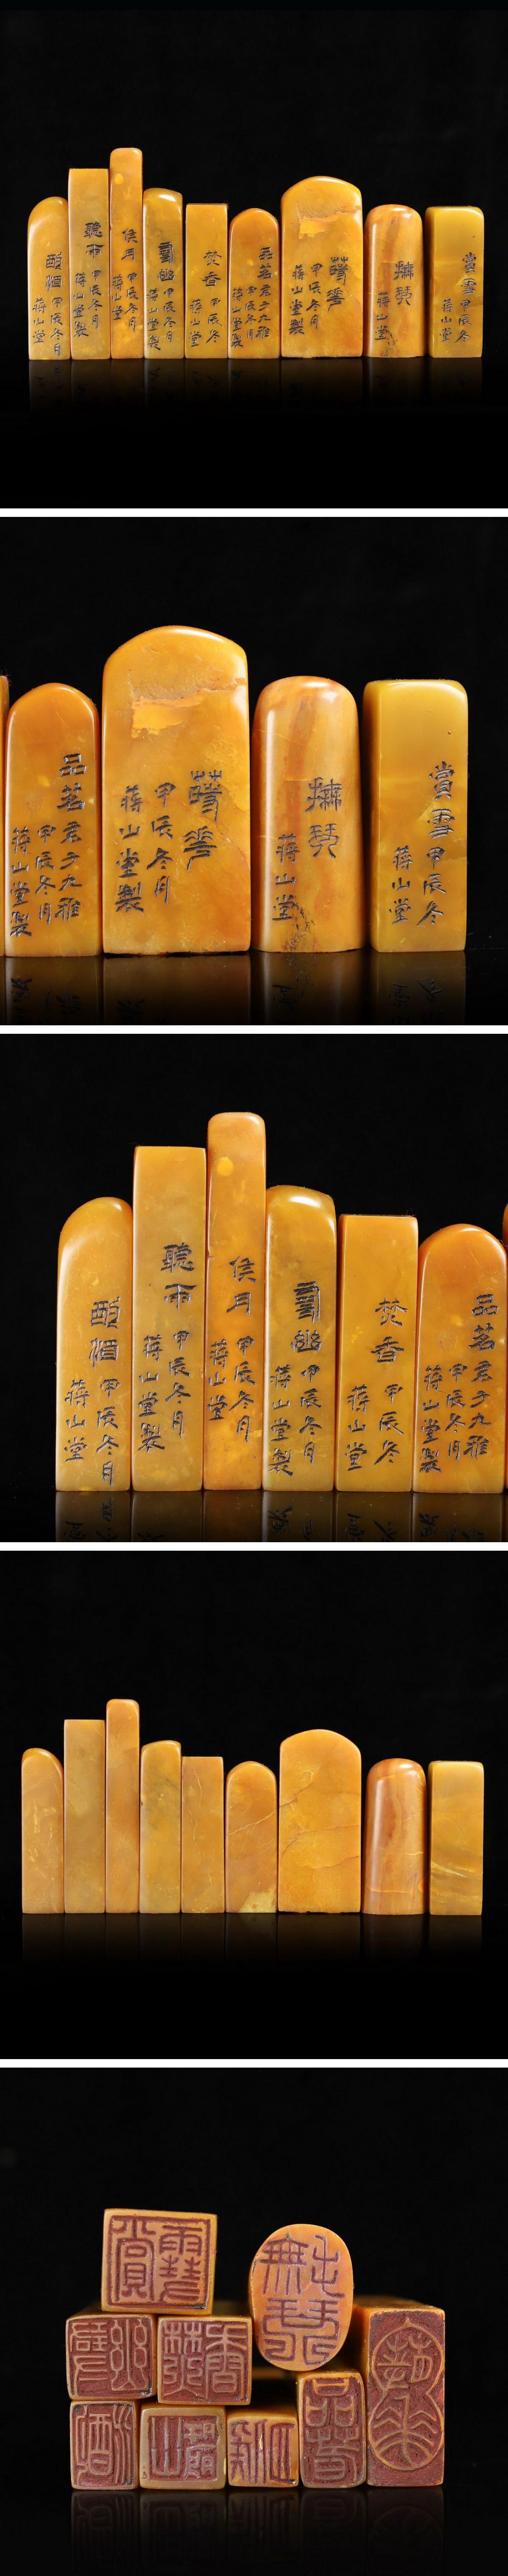 酌酒甲辰冬月
蔣山堂
聽雨甲辰冬月
蔣山堂製
候月甲辰冬月
蔣山堂
尋幽甲辰冬月
蔣山堂製
焚香甲辰冬
蔣山堂
品茗君子九雅
甲辰冬月
蔣山堂製
蒔花
甲辰冬月
蔣山堂製
撫琴
蔣山堂
賞雪甲辰冬
蔣山堂
品茗君子九雅
甲辰冬月
蔣山堂製
蒔花
甲辰冬月
蔣山堂製
撫琴
蔣山堂
賞雪甲辰冬
蔣山堂
酌酒甲辰冬月
蔣山堂
聽雨甲辰冬月
蔣山堂製
候月甲辰冬月
蔣山堂
尋幽甲辰冬月
蔣山堂製
焚香甲辰冬
蔣山堂
品茗君子九雅
甲辰冬月
蔣山堂製
賞雪
撫琴
焚香
品茗